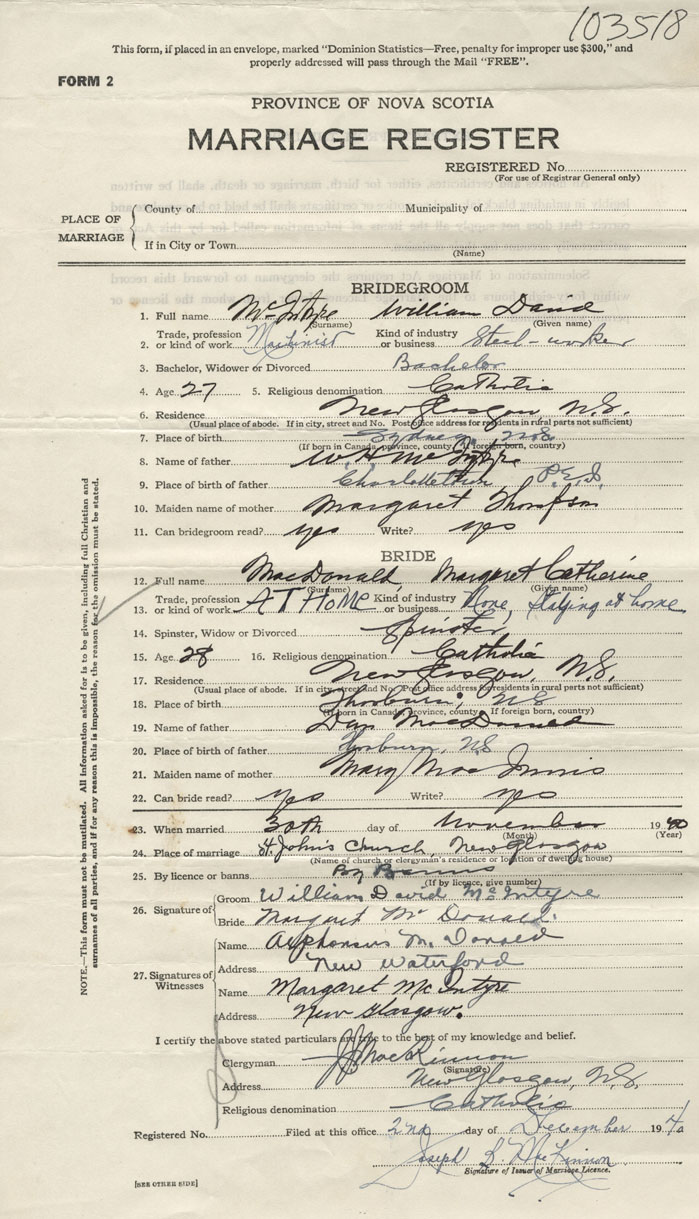 103518
This form, if placed in an envelope, marked "Dominion Statistics—Free, penalty for improper use $300," and
properly addressed will pass through the Mail "FREE".
FORM 2
PROVINCE OF NOVA SCOTIA
MARRIAGE REGISTER
REGISTERED No.
(For use of Registrar General only)
PLACE OF MARRIAGE
County of Municipality of
If in City or Town
(Name)
BRIDEGROOM
1. Full name McIntyre William David
(Surname) (Given name)
2. Trade, profession or kind of work Machinist Kind of industry or business Steel-worker
3. Bachelor, Widower or Divorced Bachelor
4. Age 27 5. Religious denomination Catholic
6. Residence New Glasgow, N.S.
(Usual place of abode. If in city, street and No. Post office address for residents in rural parts not sufficient)
7. Place of birth Sydney, N.S.
(If born in Canada, province, county. If foreign born, country)
8. Name of father W. H. McIntyre
9. Place of birth of father P.E.I.
10. Maiden name of mother Margaret Thompson
11. Can bridegroom read? yes Write? yes
BRIDE
12. Full name MacDonald, Margaret Catherine
(Surname) (Given name)
13. Trade, profession or kind of work AT HOME Kind of industry or business None, Staying at home
14. Spinster, Widow or Divorced Spinster
15. Age 28 16. Religious denomination Catholic
17. Residence New Glasgow, N.S.
(Usual place of abode. If in city, street and No. Post office address for residents in rural parts not sufficient)
18. Place of birth Thorburn, N.S.
(If born in Canada, province, county. If foreign born, country)
19. Name of father Dan MacDonald
20. Place of birth of father Thorburn, N.S
21. Maiden name of mother Mary MacInnis
22. Can bride read? yes Write? yes
23. When married 30th day of November 1940
(Month) (Year)
24. Place of marriage St. John's Church, New Glasgow
(Name of church or clergyman's residence or location of dwelling house)
25. By licence or banns By Banns
(If by licence, give number)
26. Signature of
Groom William David McIntyre
Bride Margaret McDonald.
27. Signatures of Witnesses
Name Alphonsus McDonald
Address New Waterford
Name Margaret McIntyre
Address New Glasgow.
I certify the above stated particulars are true to the best of my knowledge and belief.
Clergyman JJ MacKinnon
(Signature)
Address New Glasgow, N.S.
Religious denomination Catholic
Registered No. Filed at this office 2nd day of December 1940
Joseph MacKinnon
Signature of Issuer of Marriage Licence.
[SEE OTHER SIDE]
NOTE.—This form must not be mutilated. All information asked for is to be given, including full Christian and
surnames of all parties, and if for any reason this is impossible, the reason for the omission must be stated.